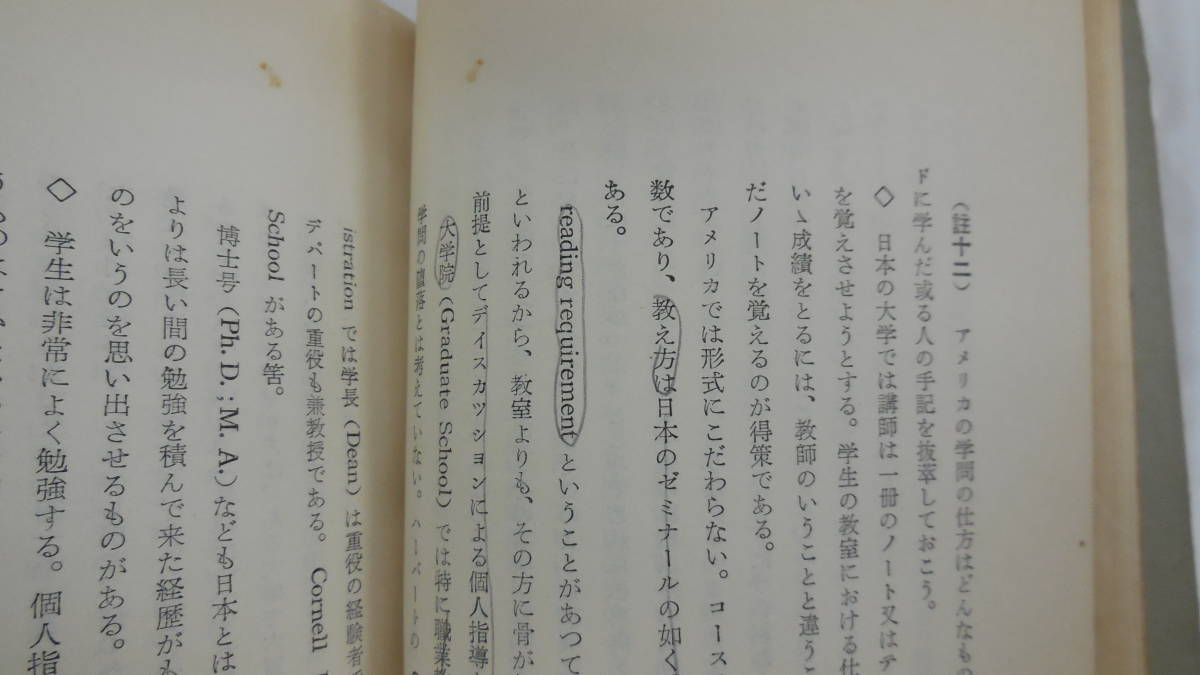 (註十二) アメリカの学問の仕方はどんなもの
ドに学んだ或る人の手記を抜萃しておこう。
◇ 日本の大学では講師は一冊のノート又はテ
を覚えさせようとする。学生の教室における仕
いゝ成績をとるには、教師のいうことと違うこ
だノートを覚えるのが得策である。
アメリカでは形式にこだわらない。コース
数であり、教え方は日本のゼミナールの如く
ある。
reading requirement ということがあつて
といわれるから、教室よりも、その方に骨が
前提としてデイスカツションによる個人指導
大学院 (Graduate School) では特に職業
学問の堕落とは考えていない。ハーバードの
istration では学長 (Dean) は重役の経験者で
デパートの重役も兼教授である。Cornell
School がある筈。
博士号 (Ph. D. ; M. A.) なども日本とは
よりは長い間の勉強を積んで来た経歴がも
のをいうのを思い出させるものがある。
◇ 学生は非常によく勉強する。個人指